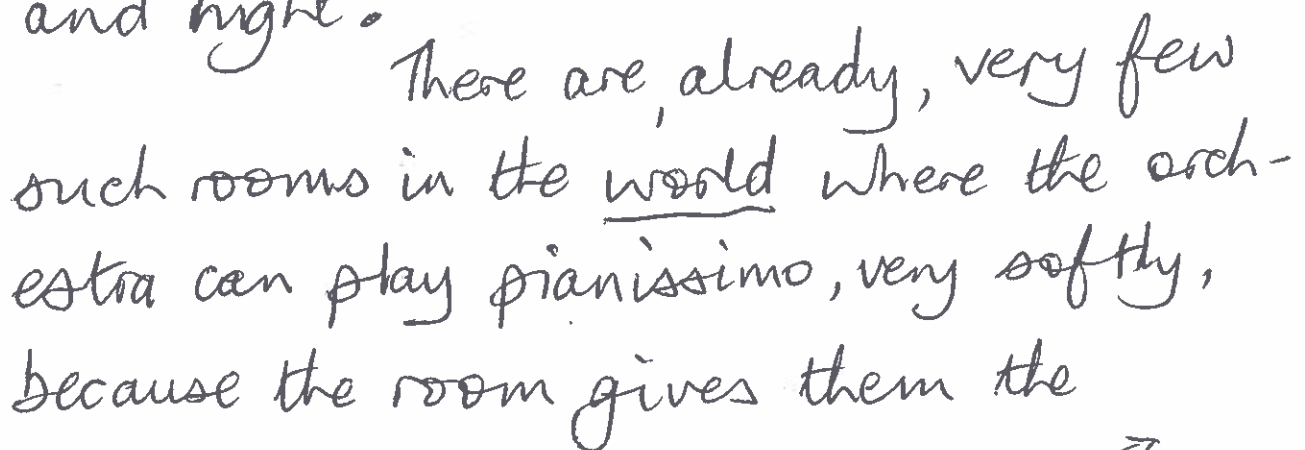 and night.
There are, already, very few
such rooms in the world where the orch-
estra can play pianissimo, very softly,
because the room gives them the